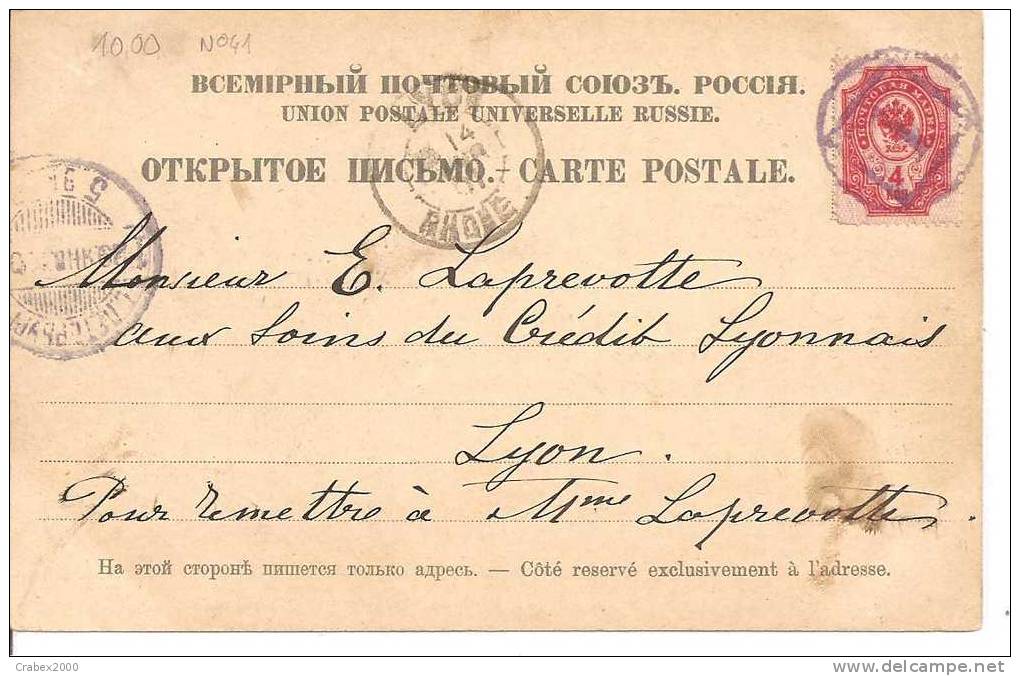 10.00 No 41
ВСЕМІРНЫЙ ПОЧТОВЫЙ СОЮЗЪ. РОССІЯ.
UNION POSTALE UNIVERSELLE RUSSIE.
ОТКРЫТОЕ ПИСЬМО. — CARTE POSTALE.
ПОЧТОВАЯ МАРКА
4
14
RHONE
Monsieur E. Laprevotte
aux soins du Crédit Lyonnais
Lyon.
Pour remettre à Mme Laprevotte.
На этой сторонѣ пишется только адресъ. — Côté reservé exclusivement à l'adresse.
Crabex2000
www.delcampe.net